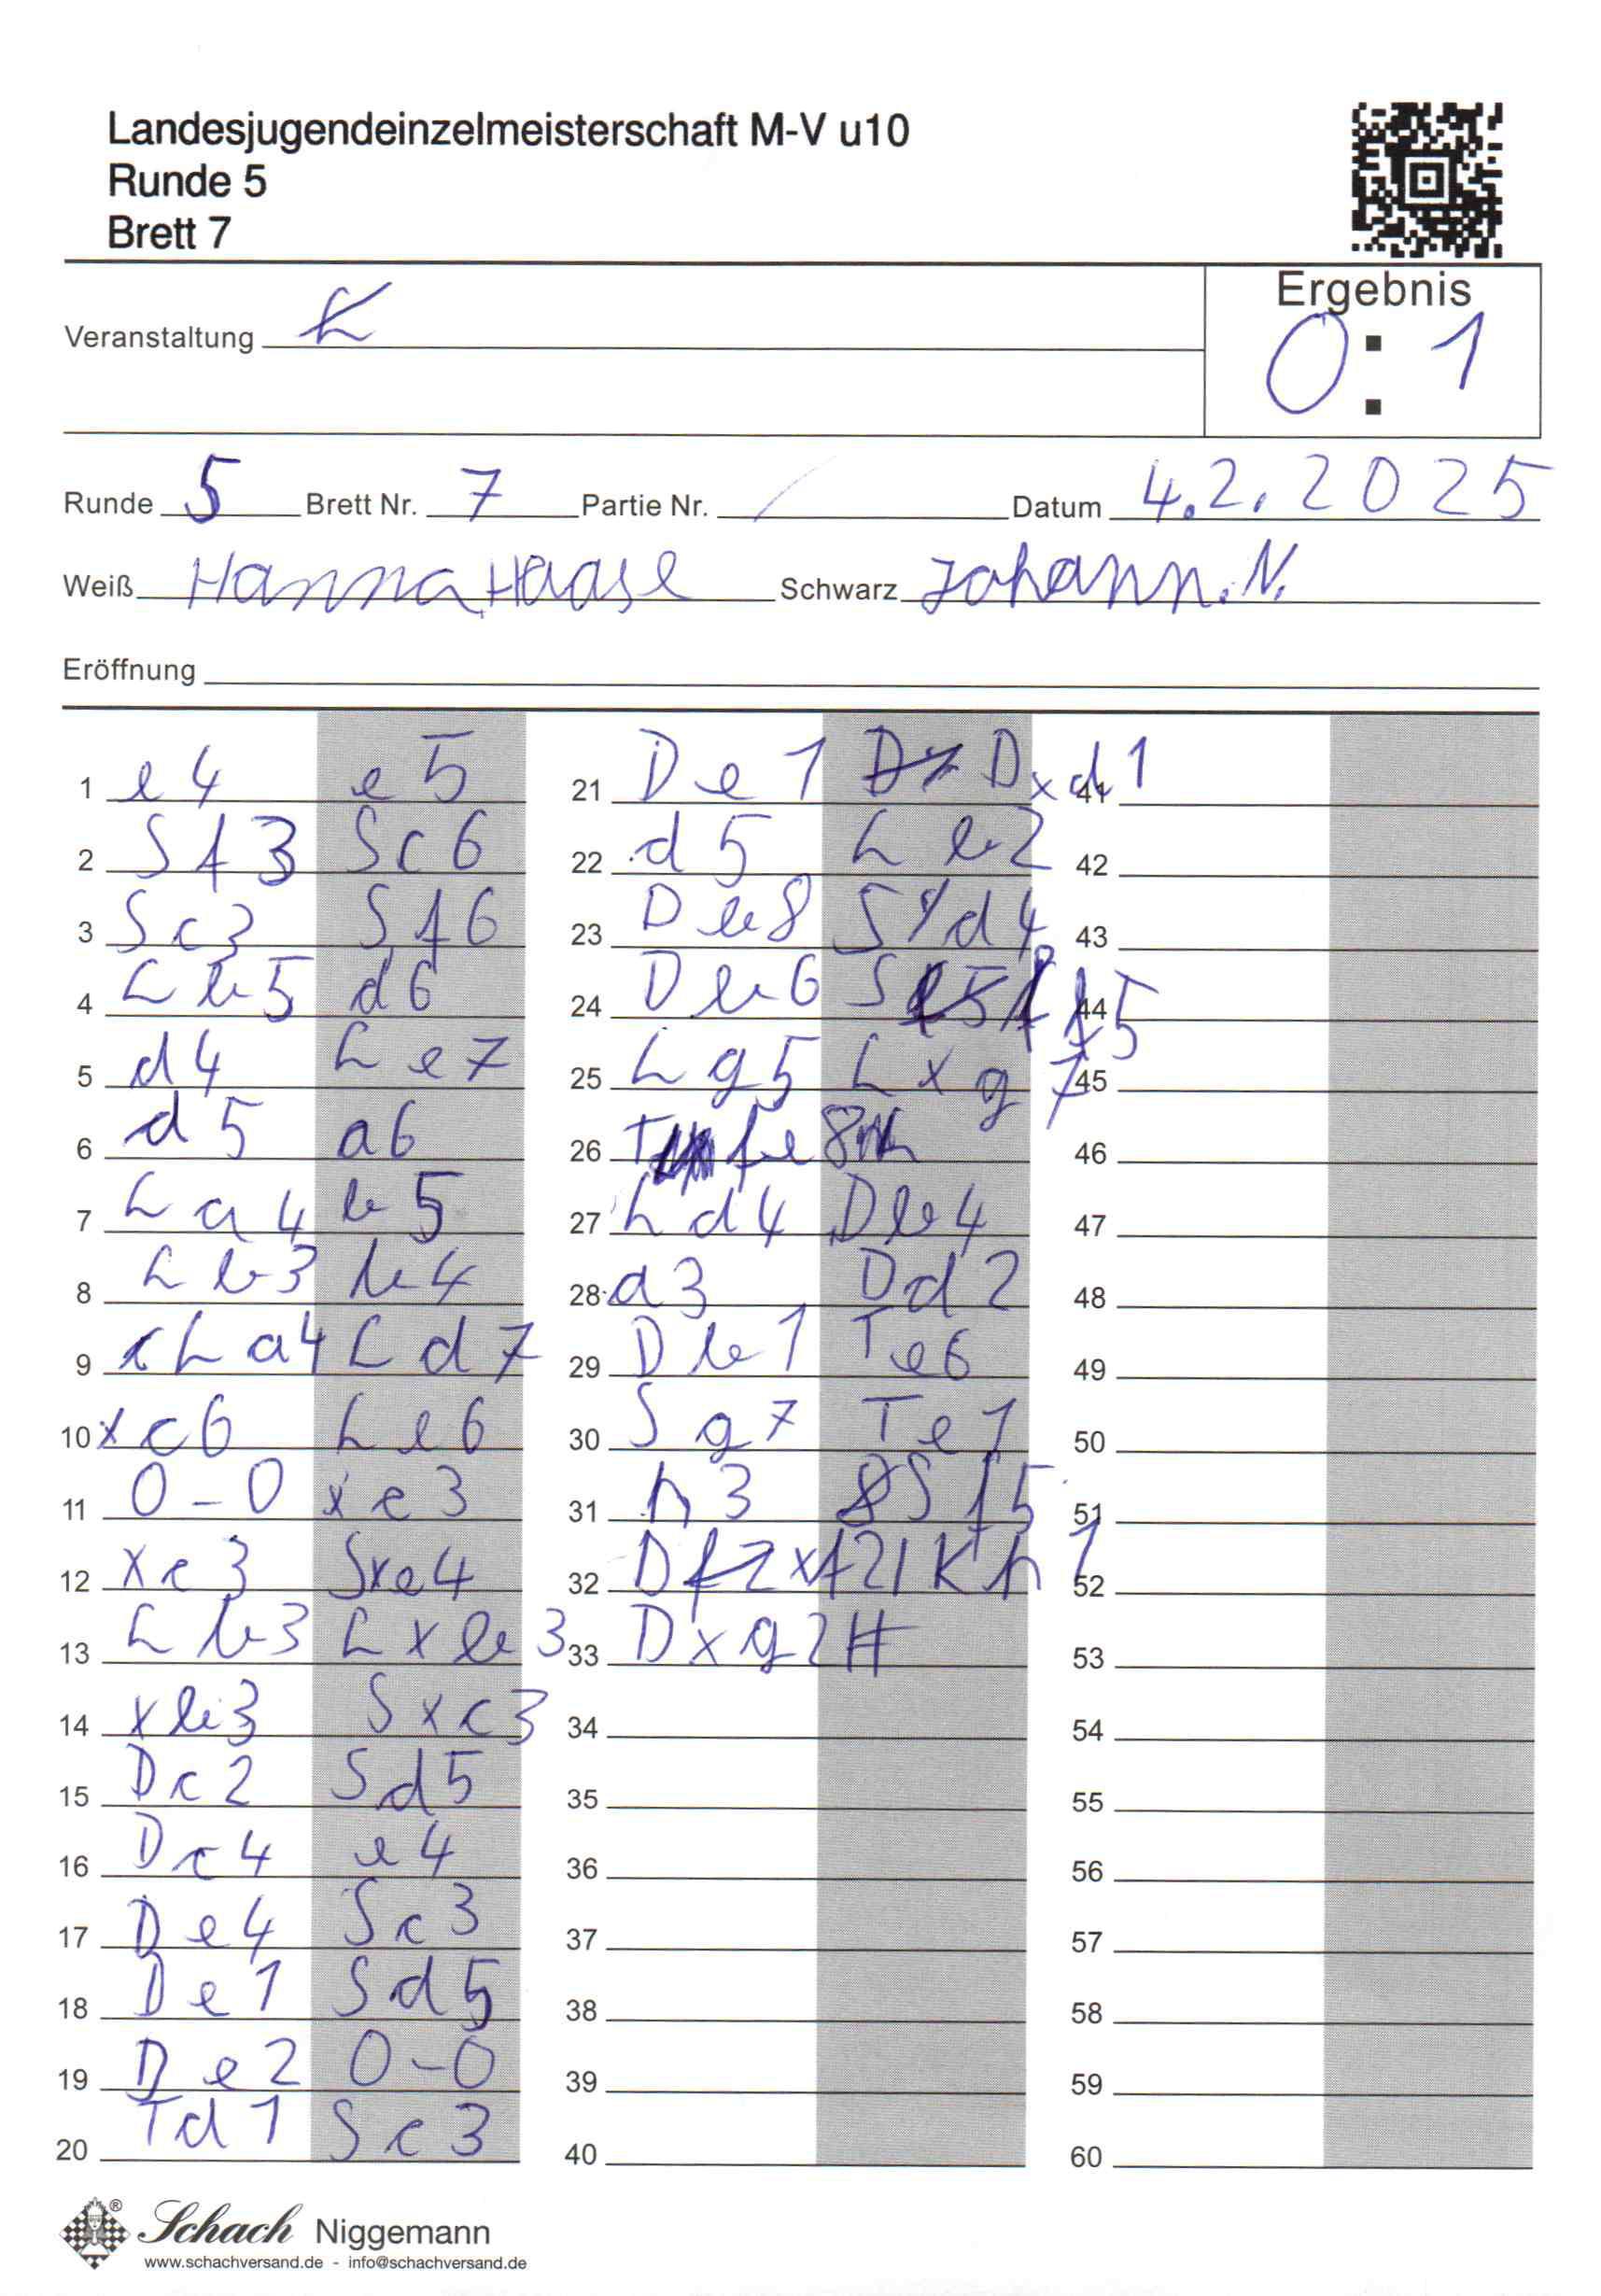 Landesjugendeinzelmeisterschaft M-V u10
Runde 5
Brett 7
Ergebnis
0 : 1
Veranstaltung L
Runde 5 Brett Nr. 7 Partie Nr. / Datum 4.2.2025
Weiß Hanna Haase Schwarz Johann.N.
Eröffnung
1 e4 e5
2 Sf3 Sc6
3 Sc3 Sf6
4 Lb5 d6
5 d4 Le7
6 d5 a6
7 La4 b5
8 Lb3 b4
9 La4 Ld7
10 xc6 Le6
11 0-0 xc3
12 xc3 Sxe4
13 Lb3 Lxb3
14 xb3 Sxc3
15 Dc2 Sd5
16 Dc4 e4
17 De4 Sc3
18 De1 Sd5
19 De2 0-0
20 Td1 Sc3
21 De1 Dxd1
22 d5 Lb2
23 Db8 Sd4
24 Db6 S f5
25 Lg5 Lxg7
26 T fe8
27 Ld4 Db4
28 a3 Dd2
29 Db1 Te6
30 Sg7 Te1
31 h3 Sf5
32 D xf2 Kh1
33 Dxg2#
34
35
36
37
38
39
40
41
42
43
44
45
46
47
48
49
50
51
52
53
54
55
56
57
58
59
60
Schach Niggemann
www.schachversand.de - info@schachversand.de